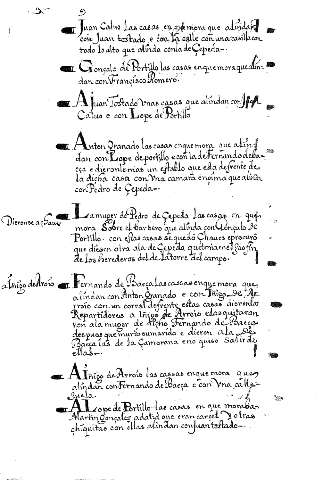 Juan Calvo las casas en que mora que alindan
con Juan tostado e con la calle con una
todo lo alto que alinda con la de Cepeda
Gonçalo de Portillo las casas en que mora que alin
dan con Francisco Romero
A Juan Tostado unas casas que alindan con
Calvo e con Lope de Portillo
Anton Granado las casas en que mora que alin
dan con Lope de portillo e con la de Fernando de
ças e dieronle mas un establo que esta de frente de
la dicha casa con una camara encima que alinda
con Pedro de Cepeda
La muger de Pedro de Cepeda las casas en que
mora Sobre el barbero que alinda con Gonçalo de
Portillo con estas casas se quedo Chaves e procuró
que diesen otra a la de Cepeda
de los herederos del de la torre del campo
Dieronte a Chaves
Fernando de Baeça las casas en que mora que
alindan con Anton Granado e con Iñigo de Ar
roio con un corral de frente estas casas dieron los
Repartidores a Iñigo de Arroio e las quitaron
a la muger de dicho Fernando de Baeça
despues que murio su marido e dieron a la de
Baeça las de la Çamorana e no quiso Salir de
ellas
a Iñigo de Arroio
A Iñigo de Arroio las casas en que mora que
alindan con Fernando de Baeça e con una calle
xuela
A Lope de Portillo las casas en que moraba
Martin Gonçales adalid que eran carcel y otras
chiquitas con ellas alindan con Juan tostado